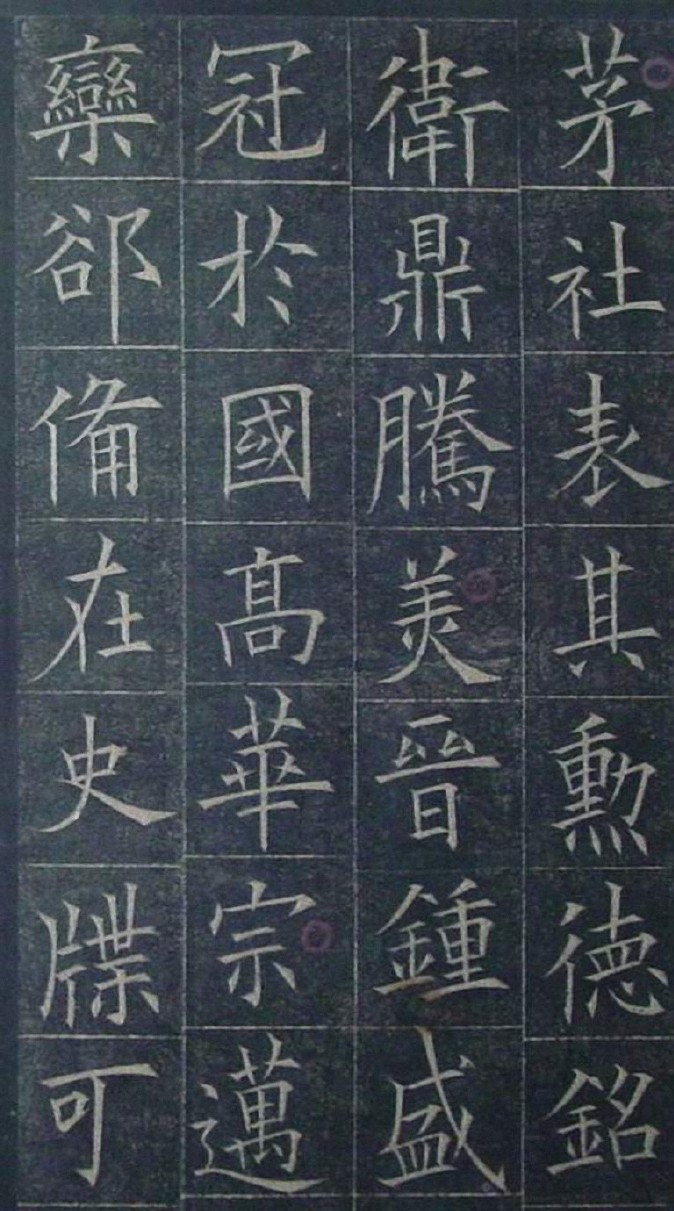 茅社表其勲德銘
衛鼎騰美晉鍾盛
冠於國高華宗邁
欒郤備在史牒可